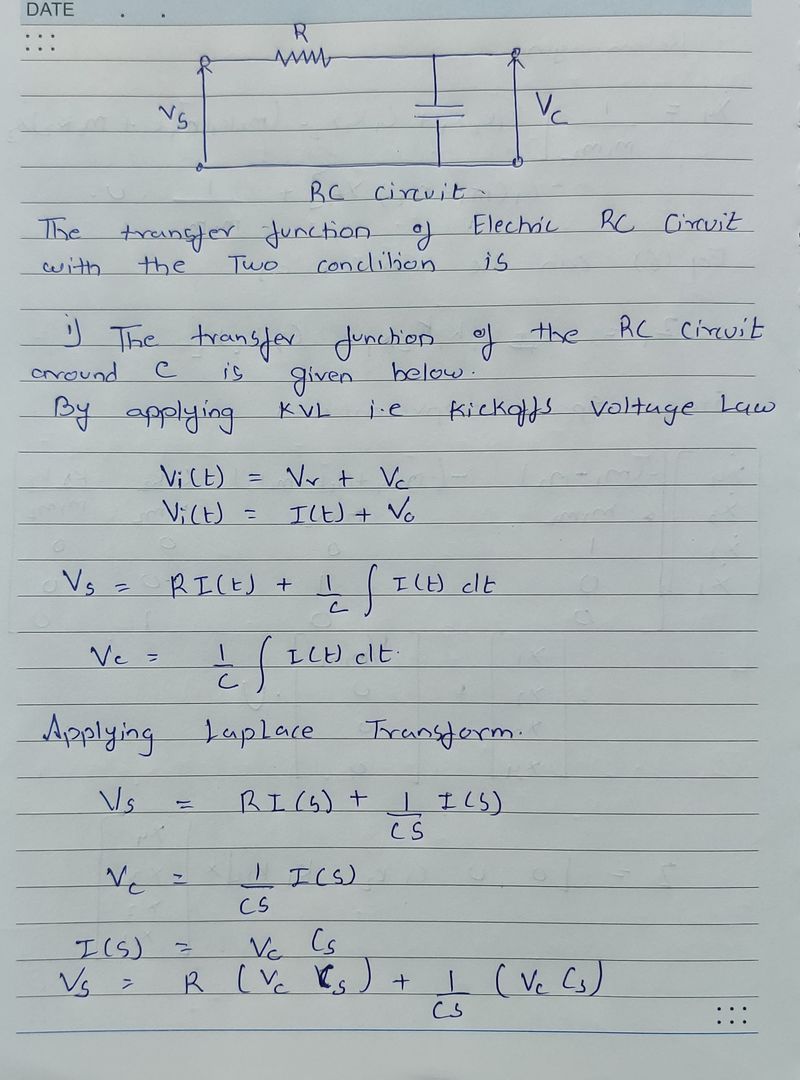 DATE . .
R
Vs
Vc
RC Circuit.
The transfer function of Electric RC Circuit
with the Two condition is
i) The transfer function of the RC Circuit
around C is given below.
By applying KVL i.e Kickoffs Voltage Law
Vi(t) = Vr + Vc
Vi(t) = I(t) + Vc
Vs = RI(t) + 1/C ∫ I(t) dt
Vc = 1/C ∫ I(t) dt.
Applying Laplace Transform.
Vs = RI(s) + 1/CS I(s)
Vc = 1/CS I(s)
I(s) = Vc Cs
Vs = R (Vc Cs) + 1/CS (Vc Cs)